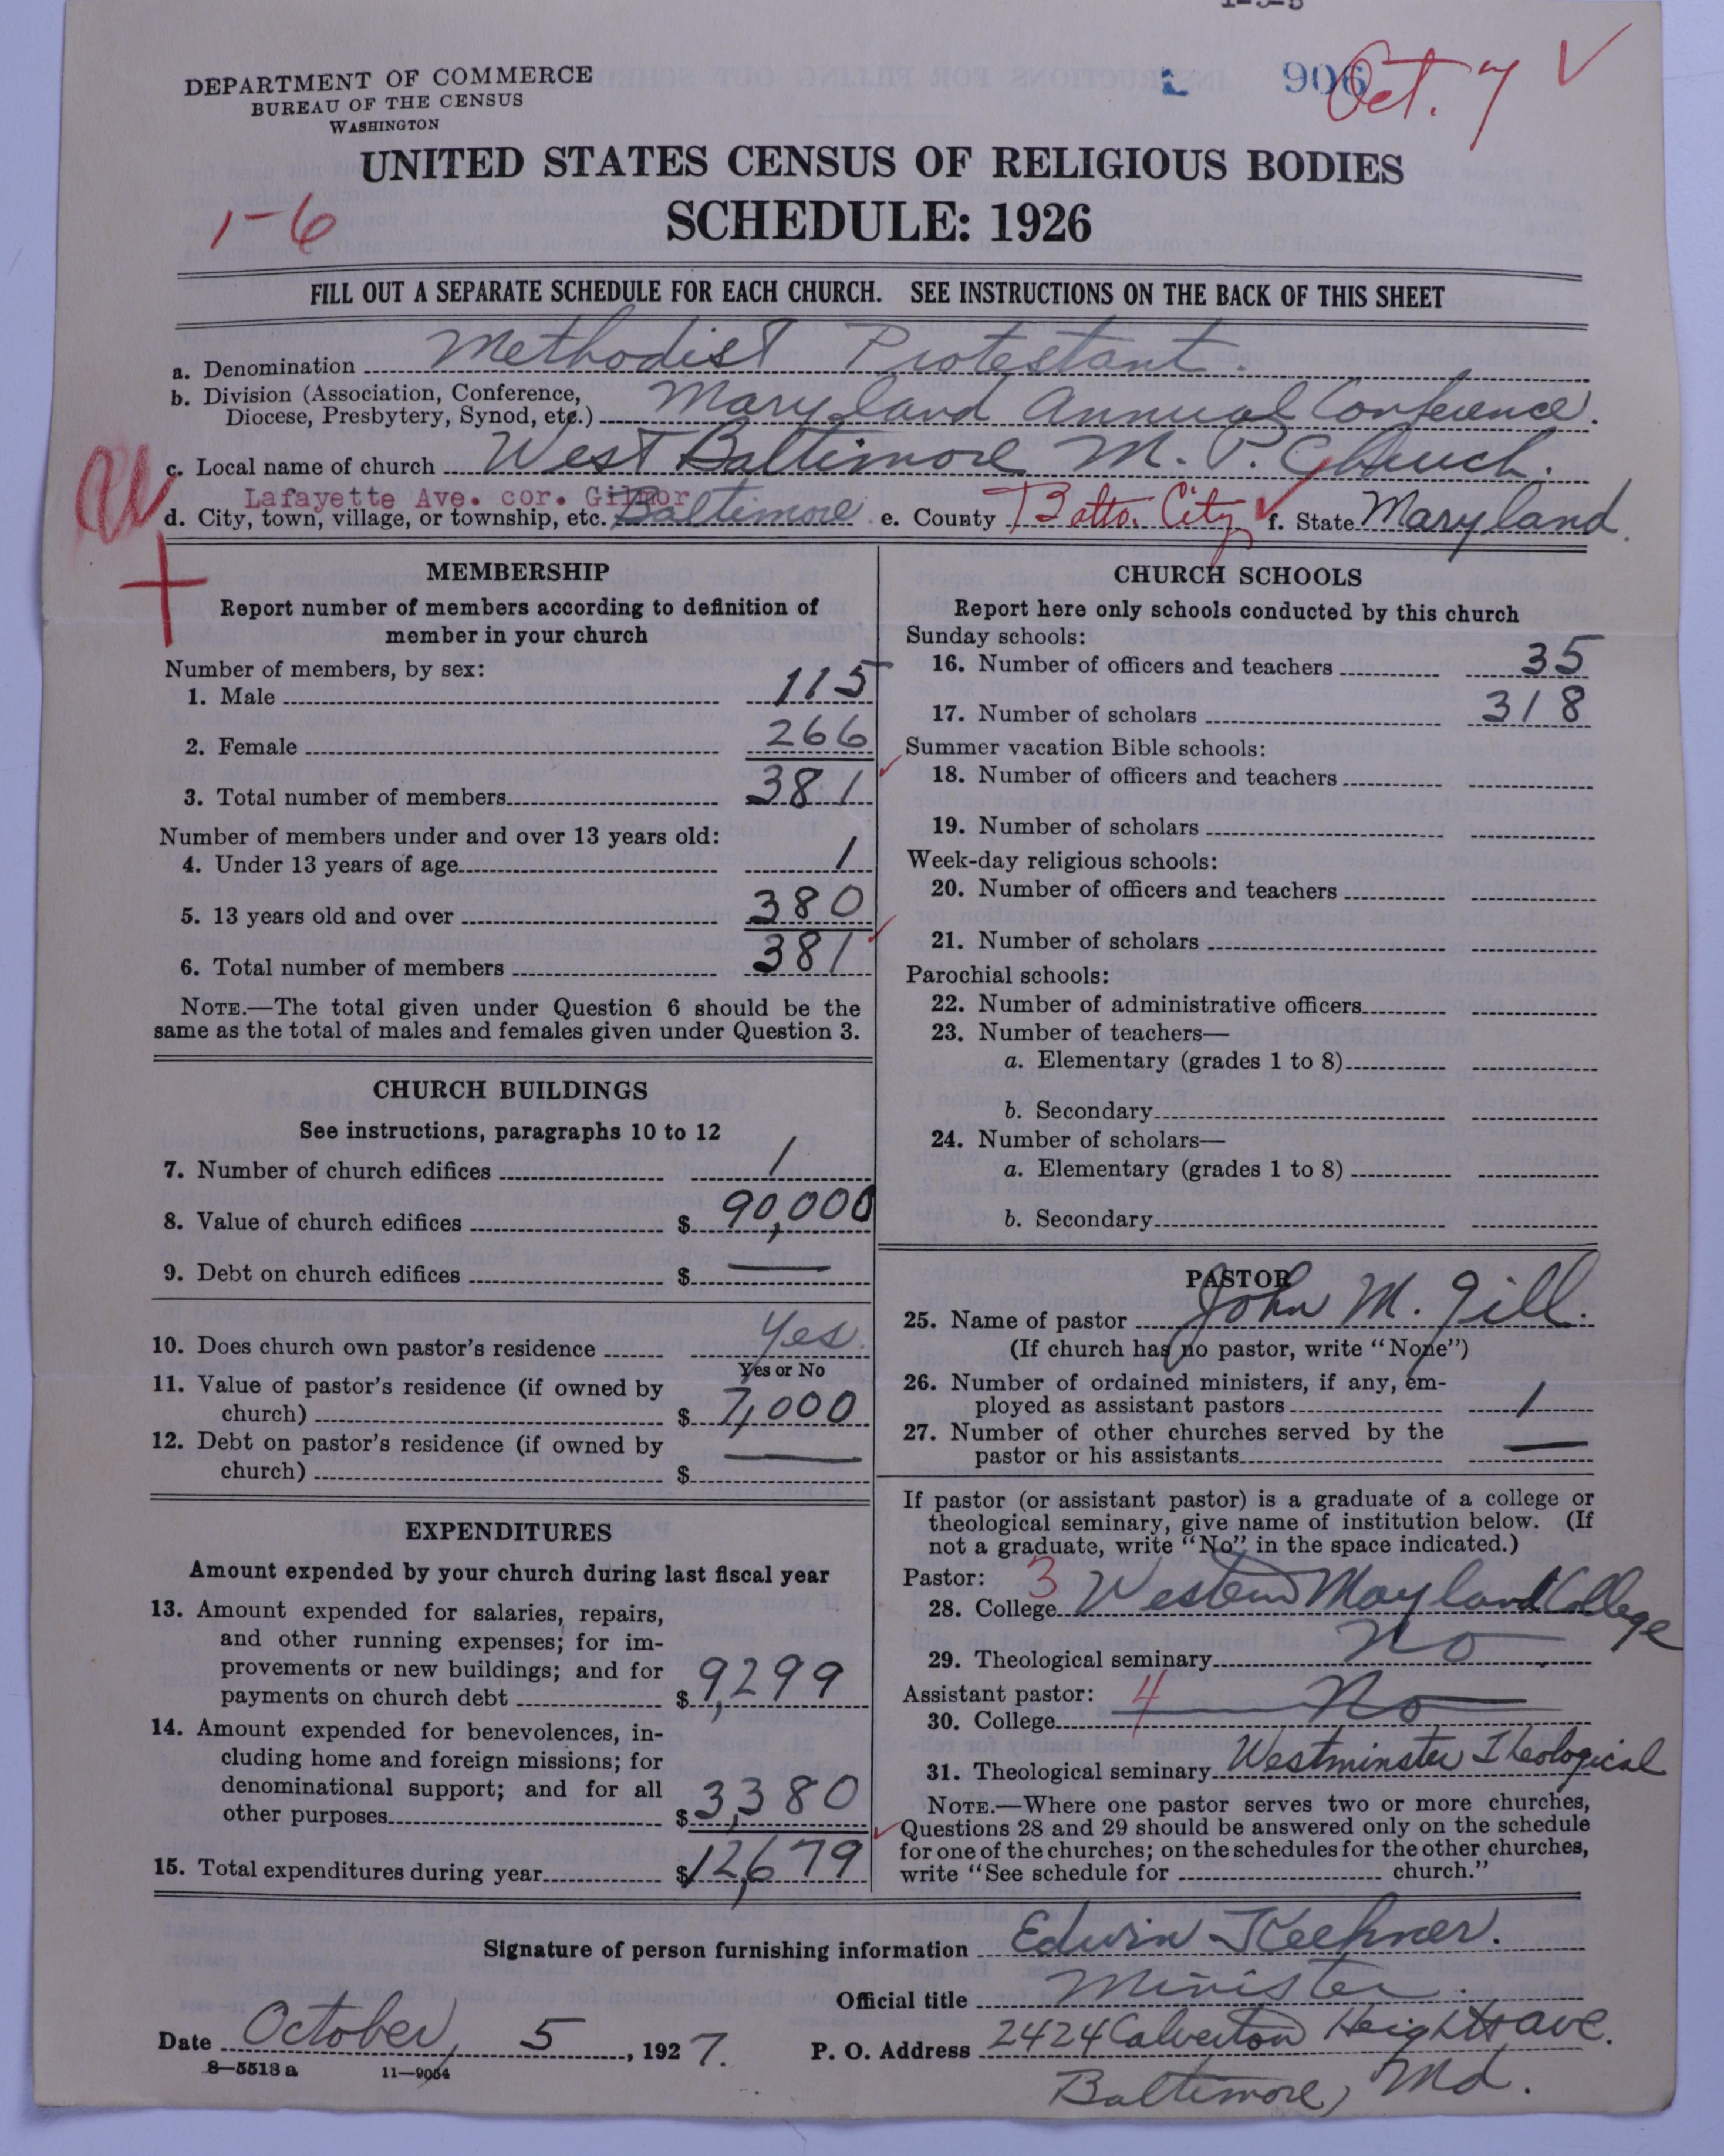 1-3-5
906 Oct. 7 ✓
DEPARTMENT OF COMMERCE
BUREAU OF THE CENSUS
WASHINGTON
UNITED STATES CENSUS OF RELIGIOUS BODIES
1-6
SCHEDULE: 1926
FILL OUT A SEPARATE SCHEDULE FOR EACH CHURCH. SEE INSTRUCTIONS ON THE BACK OF THIS SHEET
a. Denomination Methodist Protestant.
b. Division (Association, Conference,
Diocese, Presbytery, Synod, etc.) Maryland Annual Conference.
c. Local name of church West Baltimore M. P. Church.
Lafayette Ave. cor. Gilmor
d. City, town, village, or township, etc. Baltimore e. County Balto. City ✓ f. State Maryland.
MEMBERSHIP
Report number of members according to definition of
member in your church
Number of members, by sex:
1. Male 115
2. Female 266
3. Total number of members 381
Number of members under and over 13 years old:
4. Under 13 years of age 1
5. 13 years old and over 380
6. Total number of members 381
NOTE.—The total given under Question 6 should be the
same as the total of males and females given under Question 3.
CHURCH BUILDINGS
See instructions, paragraphs 10 to 12
7. Number of church edifices 1
8. Value of church edifices $ 90,000
9. Debt on church edifices $ —
10. Does church own pastor's residence Yes.
Yes or No
11. Value of pastor's residence (if owned by
church) $ 7,000
12. Debt on pastor's residence (if owned by
church) $ —
EXPENDITURES
Amount expended by your church during last fiscal year
13. Amount expended for salaries, repairs,
and other running expenses; for im-
provements or new buildings; and for
payments on church debt $ 9,299
14. Amount expended for benevolences, in-
cluding home and foreign missions; for
denominational support; and for all
other purposes $ 3,380
15. Total expenditures during year $ 12,679
CHURCH SCHOOLS
Report here only schools conducted by this church
Sunday schools:
16. Number of officers and teachers 35
17. Number of scholars 318
Summer vacation Bible schools:
18. Number of officers and teachers
19. Number of scholars
Week-day religious schools:
20. Number of officers and teachers
21. Number of scholars
Parochial schools:
22. Number of administrative officers
23. Number of teachers—
a. Elementary (grades 1 to 8)
b. Secondary
24. Number of scholars—
a. Elementary (grades 1 to 8)
b. Secondary
PASTOR
25. Name of pastor John M. Gill.
(If church has no pastor, write "None")
26. Number of ordained ministers, if any, em-
ployed as assistant pastors 1
27. Number of other churches served by the
pastor or his assistants —
If pastor (or assistant pastor) is a graduate of a college or
theological seminary, give name of institution below. (If
not a graduate, write "No" in the space indicated.)
Pastor: 3
28. College Western Maryland College
29. Theological seminary No
Assistant pastor: 4
30. College No
31. Theological seminary Westminster Theological
NOTE.—Where one pastor serves two or more churches,
Questions 28 and 29 should be answered only on the schedule
for one of the churches; on the schedules for the other churches,
write "See schedule for church."
Signature of person furnishing information Edwin
Official title Minister.
Date October, 5, 1927. P. O. Address 2424 Calverton Heights ave.
8—5518 a 11—9054
Baltimore, Md.